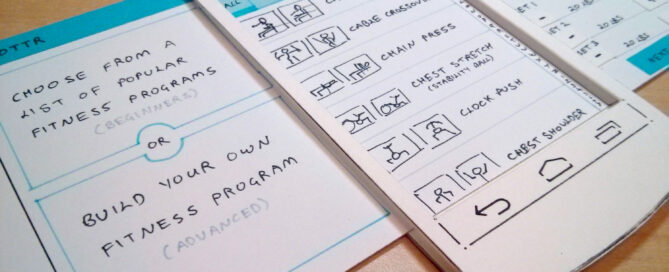 OTTR
CHOOSE FROM A
LIST OF POPULAR
FITNESS PROGRAMS
(BEGINNERS)
OR
BUILD YOUR OWN
FITNESS PROGRAM
(ADVANCED)
ALL
CABLE CROSSOVER
CHAIN PRESS
CHEST STRETCH
(STABILITY BALL)
CLOCK PUSH
CHEST SHOULDER
SET 2 - 20 LBS
SET 3 - 20 LBS